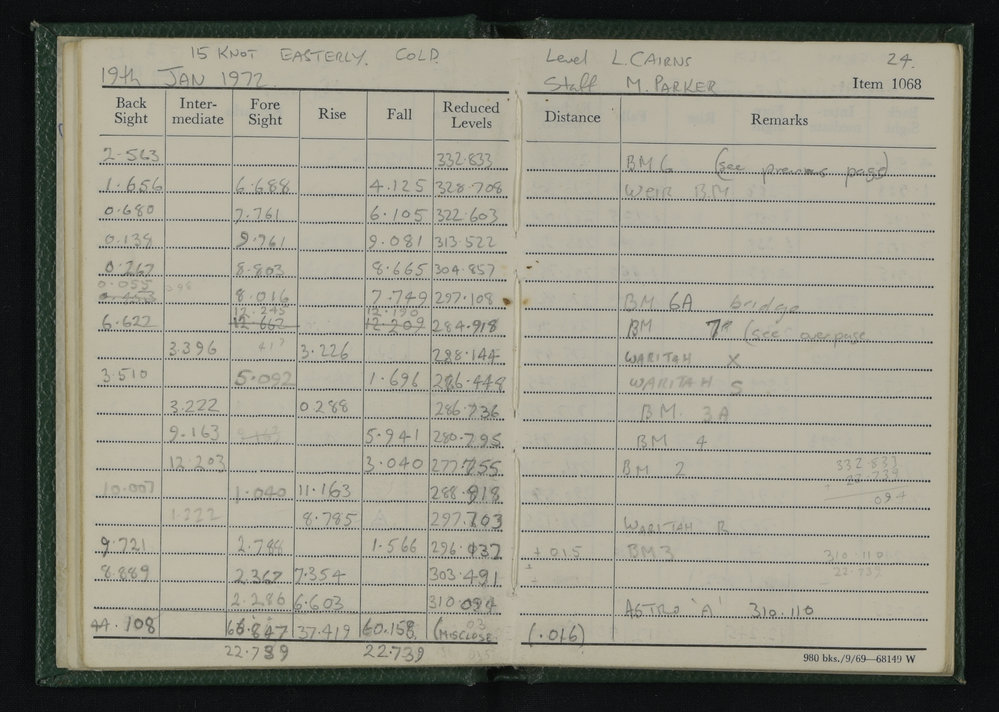 15 KNOT EASTERLY. COLD
19th JAN 1972
Level L. CAIRNS 24.
Staff M. PARKER Item 1068
Back Sight Inter-mediate Fore Sight Rise Fall Reduced Levels Distance Remarks
2.563 332.833 BM 6 (see previous page)
1.656 6.688 4.125 328.708 WEIR BM
0.680 7.761 6.105 322.603
0.139 9.761 9.081 313.522
0.267 8.803 8.665 304.857
0.055 8.016 7.749 297.108 BM 6A bridge
12.245 12.190
6.622 12.662 12.209 284.918 BM 7 (see over page
3.396 3.226 288.144 WARITAH X
3.510 5.092 1.696 286.448 WARITAH S
3.222 0.288 286.736 BM 3A
9.163 5.941 280.795 BM 4
12.203 3.040 277.755 BM 2 332.833
22.739
094
10.007 1.040 11.163 288.918
1.222 8.785 297.703 WARITAH R
9.721 2.788 1.566 296.137 +.015 BM3 310.110
8.889 2.367 7.354 303.491 22.739
2.286 6.603 310.094 ASTRO 'A' 310.110
44.108 66.847 37.419 60.158 (MISCLOSE (.016)
22.739 22.739
980 bks./9/69—68149 W